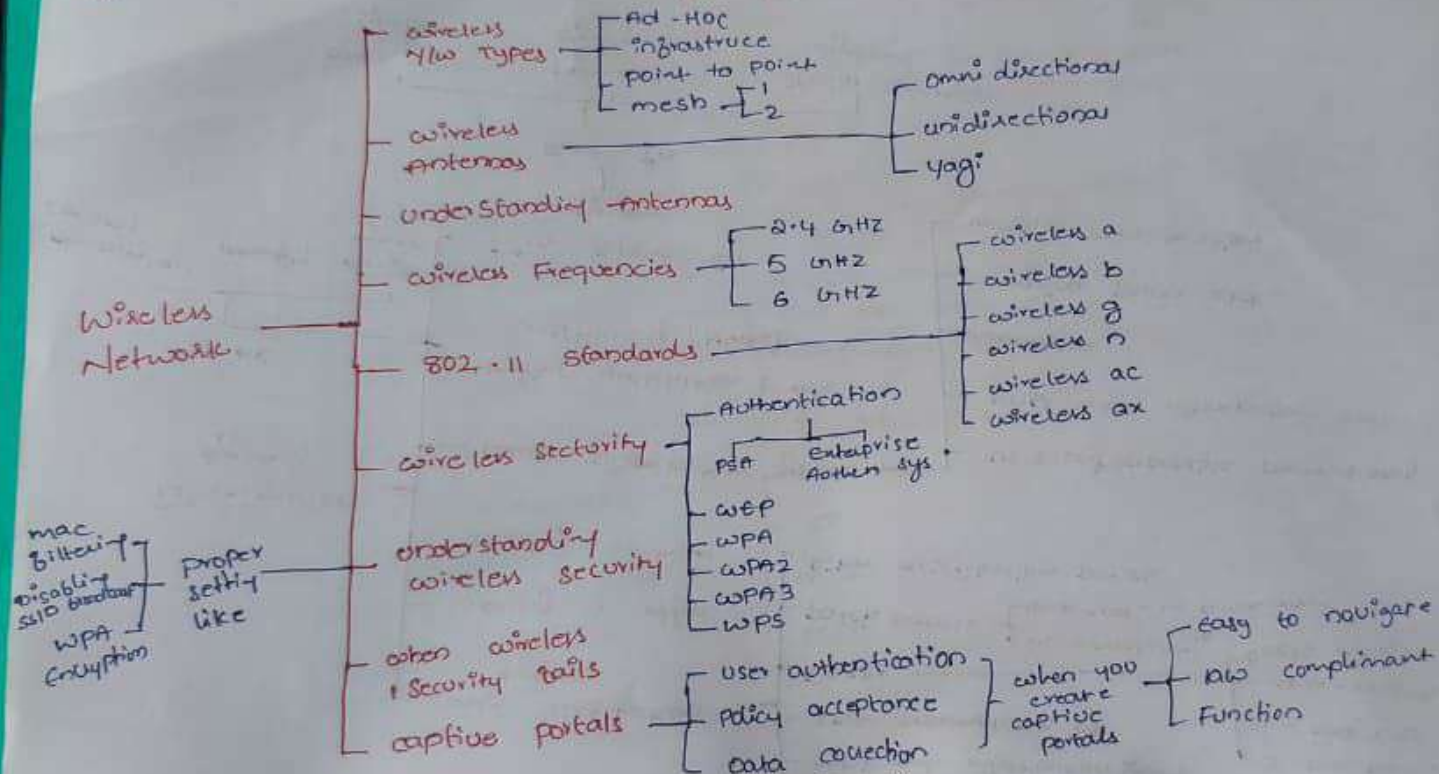 wireless
N/W Types
Ad-HOC
infrastruce
point to point
mesh
1
2
wireless
Antennas
omni directional
unidirectional
yagi
understanding Antennas
wireless Frequencies
2.4 GHZ
5 GHZ
6 GHZ
Wireless
Network
802.11 standards
wireless a
wireless b
wireless g
wireless n
wireless ac
wireless ax
wireless secturity
Authentication
PSA
Enterprise
Authen sys.
WEP
WPA
WPA2
WPA3
WPS
understanding
wireless security
proper
setting
like
mac
filtering
Disabling
SSID
WPA
Encryption
when wireless
security fails
captive portals
user authentication
policy acceptance
Data collection
when you
create
captive
portals
easy to navigare
law complimant
Function